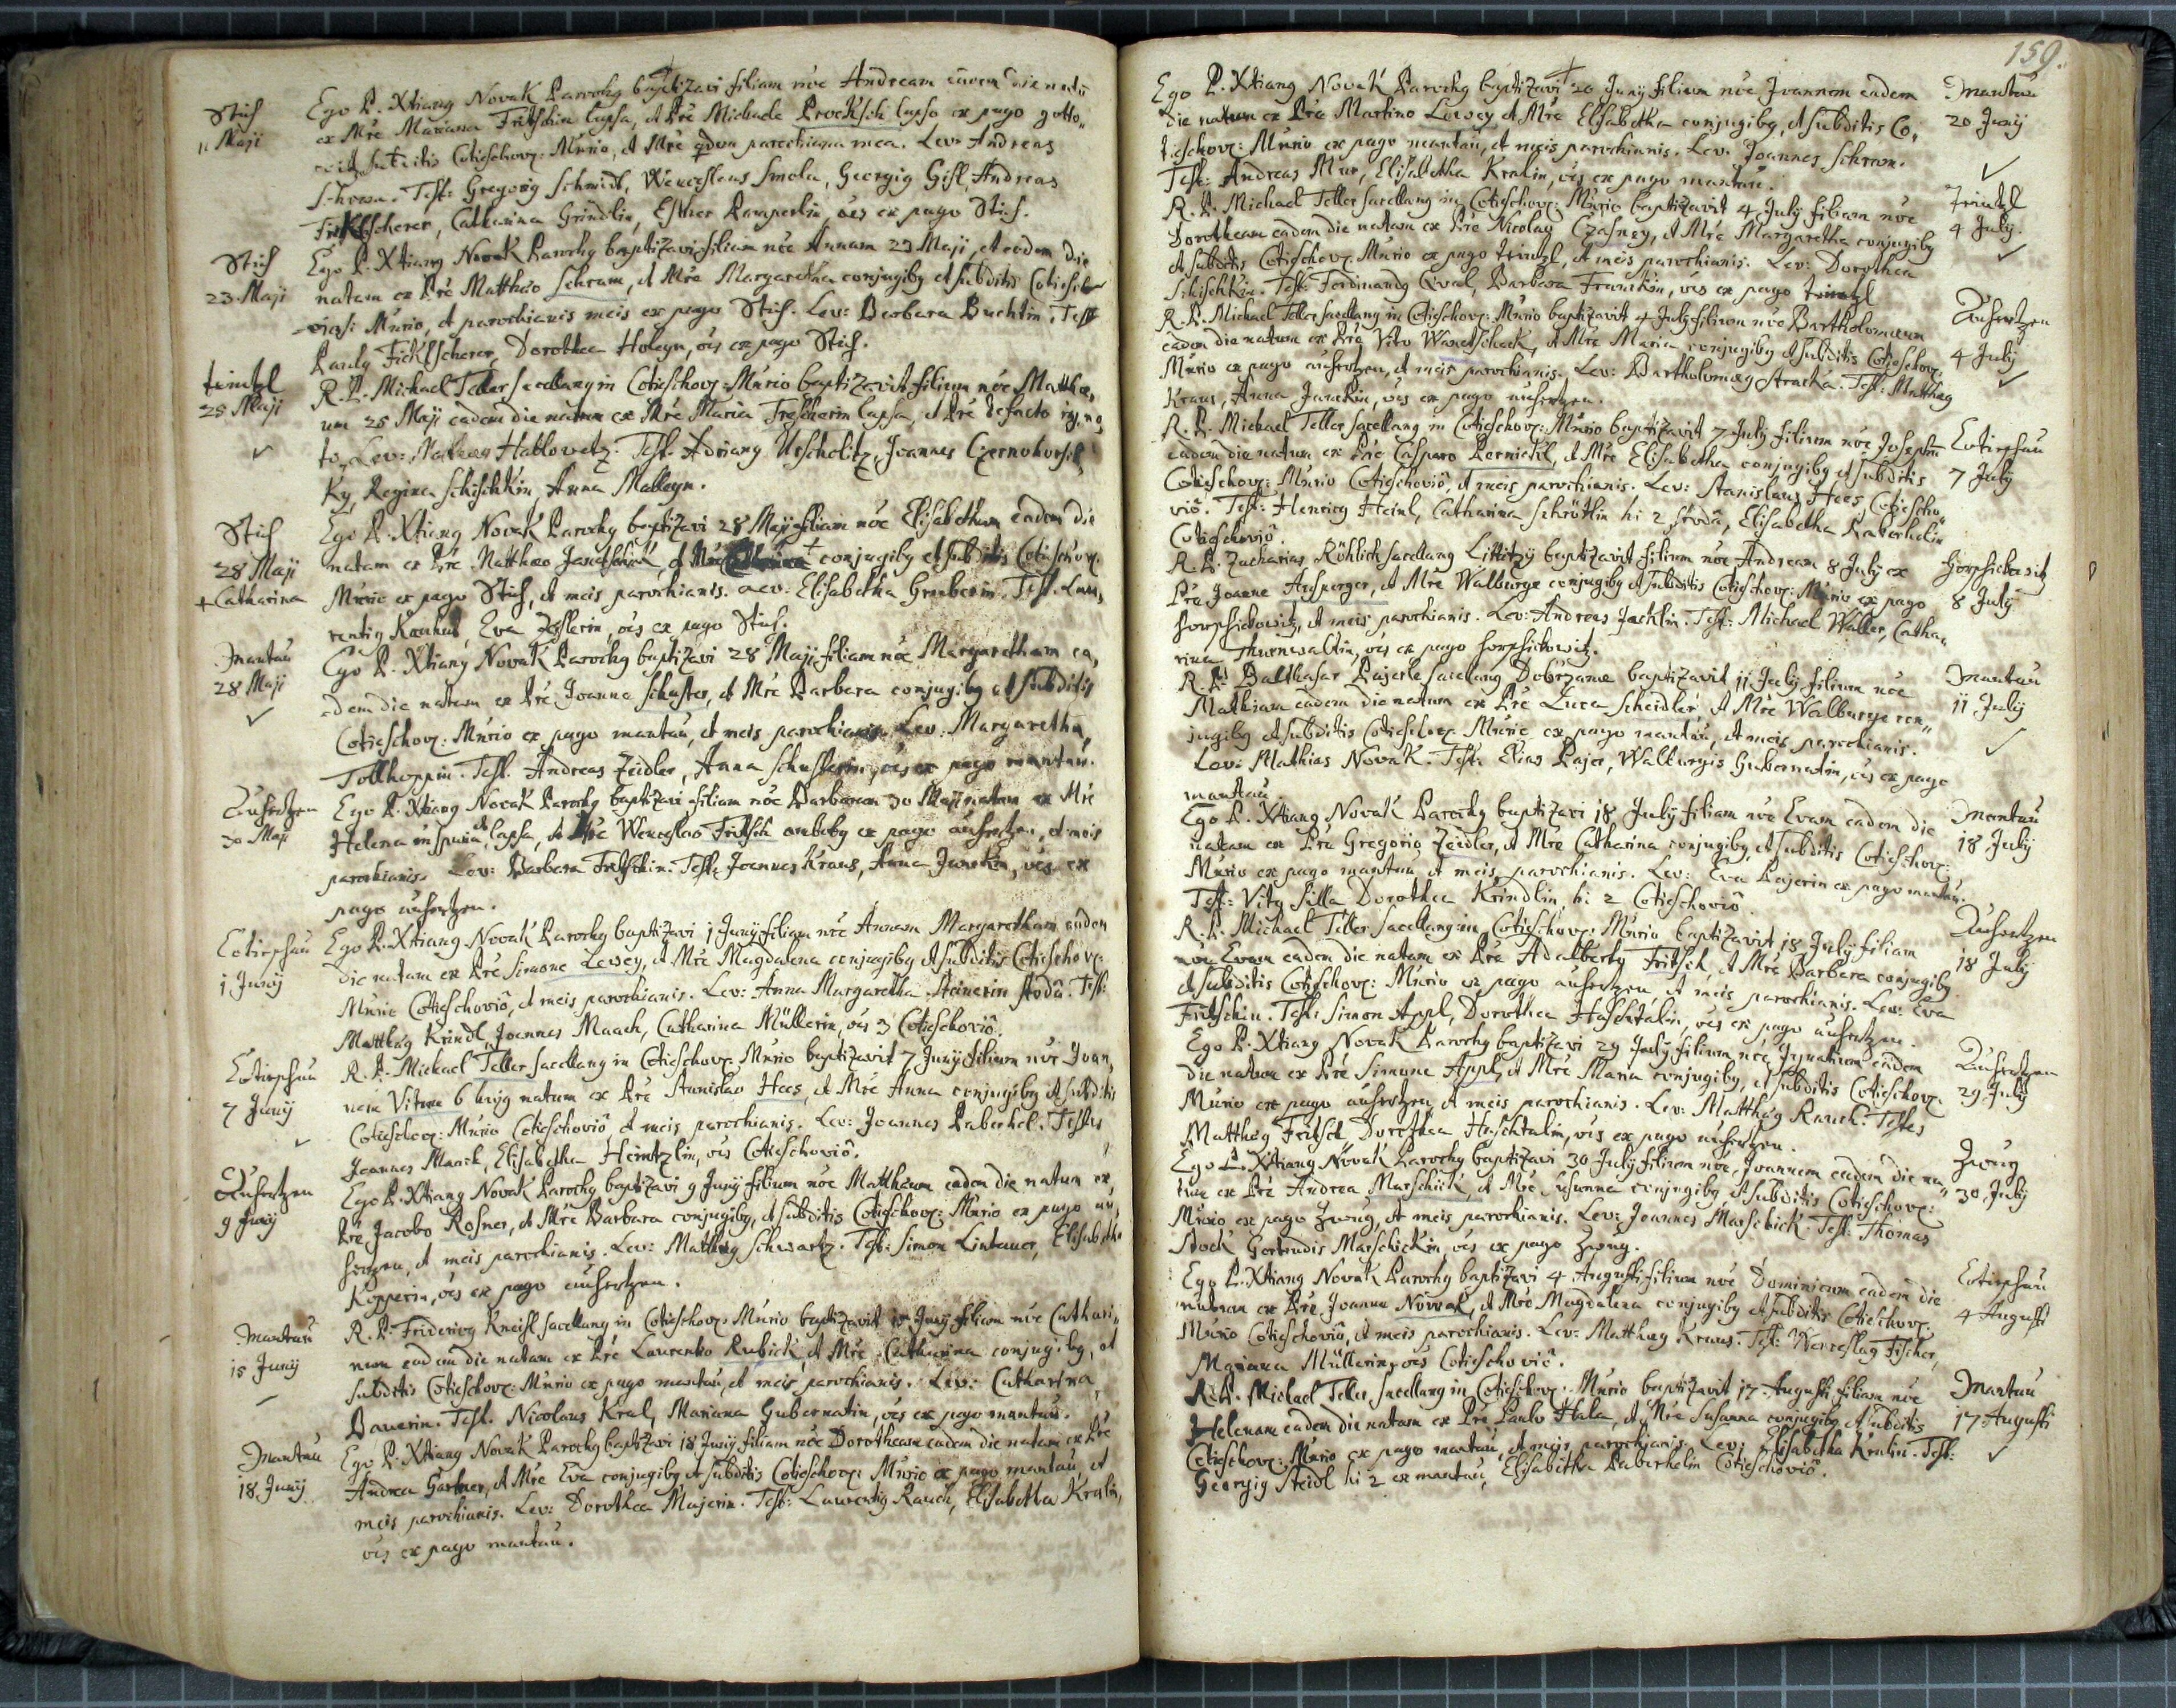 Stich
11 Maji
Ego P. Xtiang Novak Parochg baptizavi filium nõe Andream eadem die natũ
ex Mre Mariana Fritschin lapsa, et Pre Michaele Procksch lapso ex pago
subditis Cotieschov: Mũrio, et Mre parochiana mea. Lev: Andreas
Schram. Test: Gregorig Schmidt, Wenceslaus Smola, Georgig Gisl, Andreas
Ficklscherer, Catharina Grindlin, Esther Pamperlin, oẽs ex pago Stich.
Stich
23 Maji
Ego P. Xtiang Novak Parochg baptizavi filiam nõe Annam 23 Maji, et eadem die
natam ex Pre Matthæo Schram, et Mre Margaretha conjugibg et subditis Cotiescho
viens: Mũrio, et parochianis meis ex pago Stich. Lev: Barbara Buchtin. Test
Paulg Ficklscherer, Dorothea Holeyn, oẽs ex pago Stich.
teintzl
25 Maji
R. P. Michael Teller sacellang in Cotieschov: Mũrio baptizavit filium nõe Matthæ,
um 25 Maji eadem die natum ex Mre Maria Frescherin lapsa, et Pre de facto igno
to. Lev: Mathæg Hablowetz. Test. Adriang Urscholitz, Joannes Czernohorsk
ky, Regina Schischkin, Anna Malleyn.
Stich
28 Maji
+ Catharina
Ego P. Xtiang Novak Parochg baptizavi 28 Maji filiam nõe Elisabetham eadem die
natam ex Pre Matthæo Janetschek, et Mre + conjugibg et subditis Cotieschov.
Mũrio ex pago Stich, et meis parochianis. Lev: Elisabetha Gruberin. Test. Lau,
rentig Konhut, Eva Zeslerin, oẽs ex pago Stich.
Mantau
28 Maji
Ego P. Xtiang Novak Parochg baptizavi 28 Maji filiam nõe Margaretham ea,
dem die natam ex Pre Joanne Schuster, et Mre Barbara conjugibg et subditis
Cotieschov: Mũrio ex pago mantau, et meis parochianis. Lev. Margaretha
Tollhoppin. Test. Andreas Zeidler, Anna Schusterin, oẽs ex pago mantau.
Auhertzen
30 Maji
Ego P. Xtiang Novak Parochg baptizavi filiam nõe Barbaram 30 Maji natam ex Mre
Helena lapsa, et Pre Wenceslao Fritsch ambobg ex pago auhertzen, et meis
parochianis. Lev: Barbara Fritschin. Test: Joannes Kraus, Anna Janekin, oẽs ex
pago auhertzen.
Cotieschau
1 Junij
Ego P. Xtiang Novak Parochg baptizavi 1 Junij filiam nõe Annam Margaretham eadem
die natam ex Pre Simone Lewey, et Mre Magdalena conjugibg et subditis Cotieschov:
Mũrio Cotieschoviô, et meis parochianis. Lev: Anna Margaretha Steinerin Stodâ. Test:
Matthæg Krindl, Joannes Maach, Catharina Müllerin, oẽs 3 Cotieschoviô.
Cotieschau
7 Junij
R. P. Michael Teller sacellang in Cotieschov: Mũrio baptizavit 7 Junij filium nõe Joan,
nem Vitum 6 hujg natum ex Pre Stanislao Hees, et Mre Anna conjugibg et subditis
Cotieschov: Mũrio Cotieschoviô, et meis parochianis. Lev: Joannes Paberhel. Testes
Joannes Maach, Elisabetha Heintzlin, oẽs Cotieschoviô.
Auhertzen
9 Junij
Ego P. Xtiang Novak Parochg baptizavi 9 Junij filium nõe Matthæum eadem die natum ex,
Pre Jacobo Rosner, et Mre Barbara conjugibg, et subditis Cotieschov: Mũrio ex pago au,
hertzen, et meis parochianis. Lev: Matthæg Schwartz. Test: Simon Lintauer, Elisabetha
Kopperin, oẽs ex pago auhertzen.
Mantau
15 Junij
R. P. Fridericg Kneisl sacellang in Cotieschov: Mũrio baptizavit 15 Junij filiam nõe Cathari,
nam eadem die natam ex Pre Laurentio Kubick, et Mre Catharina conjugibg, et
subditis Cotieschov: Mũrio ex pago mantau, et meis parochianis. Lev: Catharina
Bauerin. Test. Nicolaus Kral, Mariana Gubernatin, oẽs ex pago mantau.
Mantau
18 Junij
Ego P. Xtiang Novak Parochg baptizavi 18 Junij filiam nõe Dorotheam eadem die natam ex Pre
Andrea Gartner, et Mre Eva conjugibg et subditis Cotieschov: Mũrio ex pago mantau, et
meis parochianis. Lev: Dorothea Majerin. Test: Laurentig Rauch, Elisabetha Kralin,
oẽs ex pago mantau.
159.
Ego P. Xtiang Novak Parochg baptizavi 20 Junij filium nõe Joannem eadem
die natum ex Pre Martino Lewey et Mre Elisabetha conjugibg, et subditis Co,
tieschov: Mũrio ex pago mantau, et meis parochianis. Lev. Joannes Schram.
Test: Andreas Mur, Elisabetha Kralin, oẽs ex pago mantau.
Mantau
20 Junij
R. P. Michael Teller sacellang in Cotieschov: Mũrio baptizavit 4 July filiam nõe
Dorotheam eadem die natam ex Pre Nicolao Czasney, et Mre Margaretha conjugibg
et subditis Cotieschov: Mũrio ex pago teintzl, et meis parochianis. Lev: Dorothea
Schischkin. Test: Ferdinandg Qval, Barbara Franckin, oẽs ex pago teintzl
Teintzl
4 July.
R. P. Michael Teller sacellang in Cotieschov: Mũrio baptizavit 4 July filium nõe Bartholomæum
eadem die natum ex Pre Vito Wanetscheck, et Mre Maria conjugibg et subditis Cotieschov:
Mũrio ex pago auhertzen, et meis parochianis. Lev: Bartholomæg Straka. Test: Matthæg
Kraus, Anna Janekin, oẽs ex pago auhertzen.
Auhertzen
4 July
R. P. Michael Teller sacellang in Cotieschov: Mũrio baptizavit 7 July filium nõe Josephũ
eadem die natum ex Pre Casparo Pernickl, et Mre Elisabetha conjugibg et subditis
Cotieschov: Mũrio Cotieschoviô, et meis parochianis. Lev: Stanislaus Hees Cotiescho,
viô. Test: Henricg Heinl, Catharina Schrötlin hi 2 Stodâ, Elisabetha Paberhelin
Cotieschoviô.
Cotieschau
7 July
R. P. Zacharias Röhlich sacellang Littitzij baptizavit filium nõe Andream 8 July ex
Pre Joanne Arsperger, et Mre Walburge conjugibg et subditis Cotieschov: Mũrio ex pago
horschickowitz, et meis parochianis. Lev: Andreas Jacklin. Test: Michael Waller, Catha,
rina Thurnwaltin, oẽs ex pago horschickowitz.
8 July
R. P. Balthasar Pajerle sacellang Dobrzanæ baptizavit 11 July filium nõe
Mathiam eadem die natum ex Pre Luca Scheidler, et Mre Walburge con,
jugibg et subditis Cotieschov: Mũrio ex pago mantau, et meis parochianis.
Lev: Mathias Novak. Test: Elias Pajer, Walburgis Gubernatin, oẽs ex pago
mantau.
Mantau
11 July
Ego P. Xtiang Novak Parochg baptizavi 18 July filiam nõe Evam eadem die
natam ex Pre Gregorio Zeidler, et Mre Catharina conjugibg, et subditis Cotieschov:
Mũrio ex pago mantau, et meis parochianis. Lev: Eva Pajerin ex pago mantau.
Test: Vitg Silla Dorothea Krindlin, hi 2 Cotieschoviô.
Mantau
18 July
R. P. Michael Teller sacellang in Cotieschov: Mũrio baptizavit 18 July filiam
nõe Evam eadem die natam ex Pre Adalberto Fritsch, et Mre Barbara conjugibg
et subditis Cotieschov: Mũrio ex pago auhertzen et meis parochianis. Lev: Eva
Fritschin. Test: Simon Appl, Dorothea Haschtalin, oẽs ex pago auhertzen.
Auhertzen
18 July
Ego P. Xtiang Novak Parochg baptizavi 29 July filium nõe Ignatium eadem
die natum ex Pre Simone Appl, et Mre Maria conjugibg, et subditis Cotieschov.
Mũrio ex pago auhertzen, et meis parochianis. Lev: Matthæg Rauch. Testes
Matthæg Fritsch, Dorothea Haschtalin, oẽs ex pago auhertzen.
Auhertzen
29 July
Ego P. Xtiang Novak Parochg baptizavi 30 July filium nõe Joannem eadem die na,
tum ex Pre Andrea Marschick, et Mre Susanna conjugibg et subditis Cotieschov:
Mũrio ex pago Zwug, et meis parochianis. Lev: Joannes Marschick. Test: Thomas
Stock, Gertrudis Marschickin, oẽs ex pago Zwug.
Zwug
30 July
Ego P. Xtiang Novak Parochg baptizavi 4 Augusti filium nõe Dominicum eadem die
natum ex Pre Joanne Novak, et Mre Magdalena conjugibg et subditis Cotieschov:
Mũrio Cotieschoviô, et meis parochianis. Lev: Matthæg Kraus. Test: Wenceslaus Fischer,
Mariana Müllerin, oẽs Cotieschoviô.
Cotieschau
4 Augusti
R. P. Michael Teller sacellang in Cotieschov: Mũrio baptizavit 17 Augusti filiam nõe
Helenam eadem die natam ex Pre Paulo Hala, et Mre Susanna conjugibg et subditis
Cotieschov: Mũrio ex pago mantau, et meis parochianis. Lev: Elisabetha Kralin. Test:
Georgig Steidl hi 2 ex mantau, Elisabetha Paberhelin Cotieschoviô.
Mantau
17 Augusti